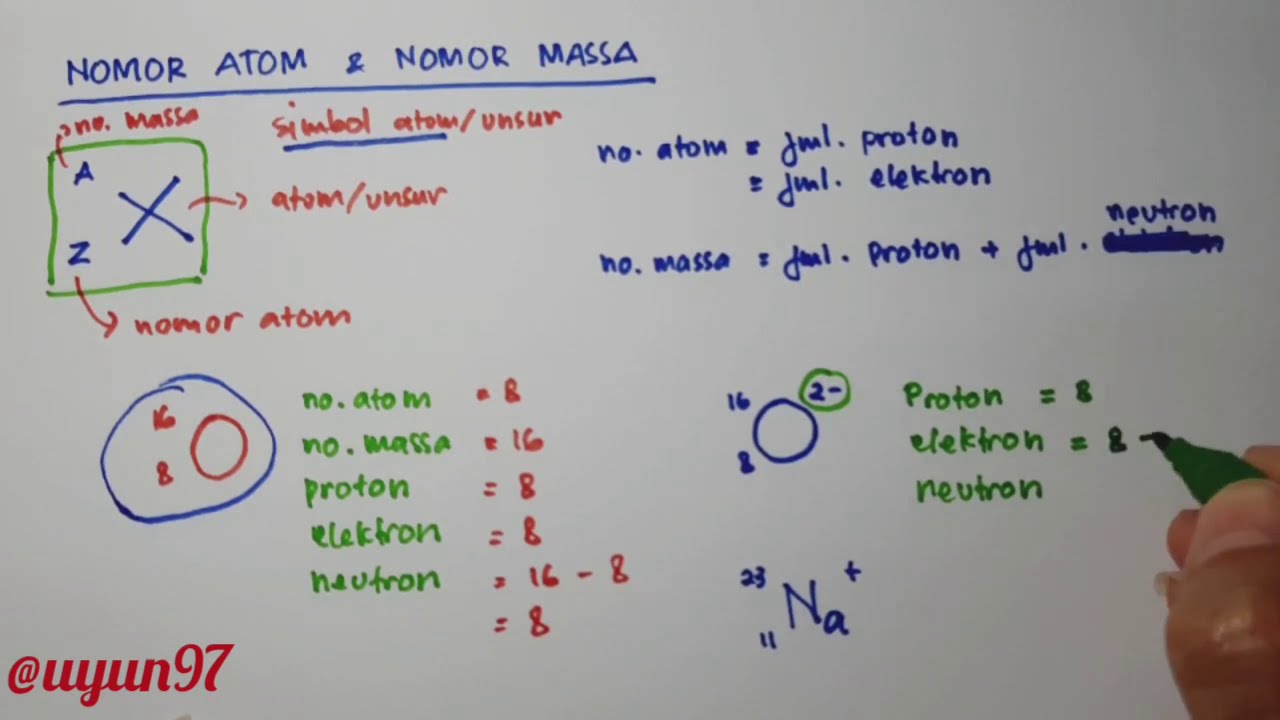 NOMOR ATOM & NOMOR MASSA
no. massa
simbol atom/unsur
A
X
Z
atom/unsur
nomor atom
no. atom = jml. proton
= jml. elektron
neutron
no. massa = jml. proton + jml.
16
8
O
no. atom = 8
no. massa = 16
proton = 8
elektron = 8
neutron = 16 - 8
= 8
16
8
O
2-
Proton = 8
elektron = 8 -
neutron
23
11
Na
+
@uyun97